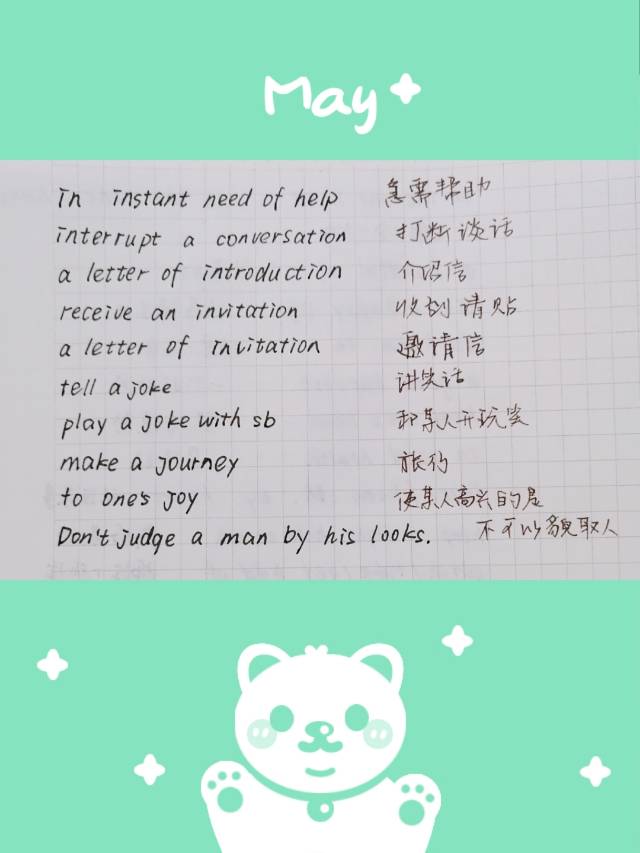 May
in instant need of help 急需帮助
interrupt a conversation 打断谈话
a letter of introduction 介绍信
receive an invitation 收到请贴
a letter of invitation 邀请信
tell a joke 讲笑话
play a joke with sb 和某人开玩笑
make a journey 旅行
to one's joy 使某人高兴的是
Don't judge a man by his looks. 不可以貌取人